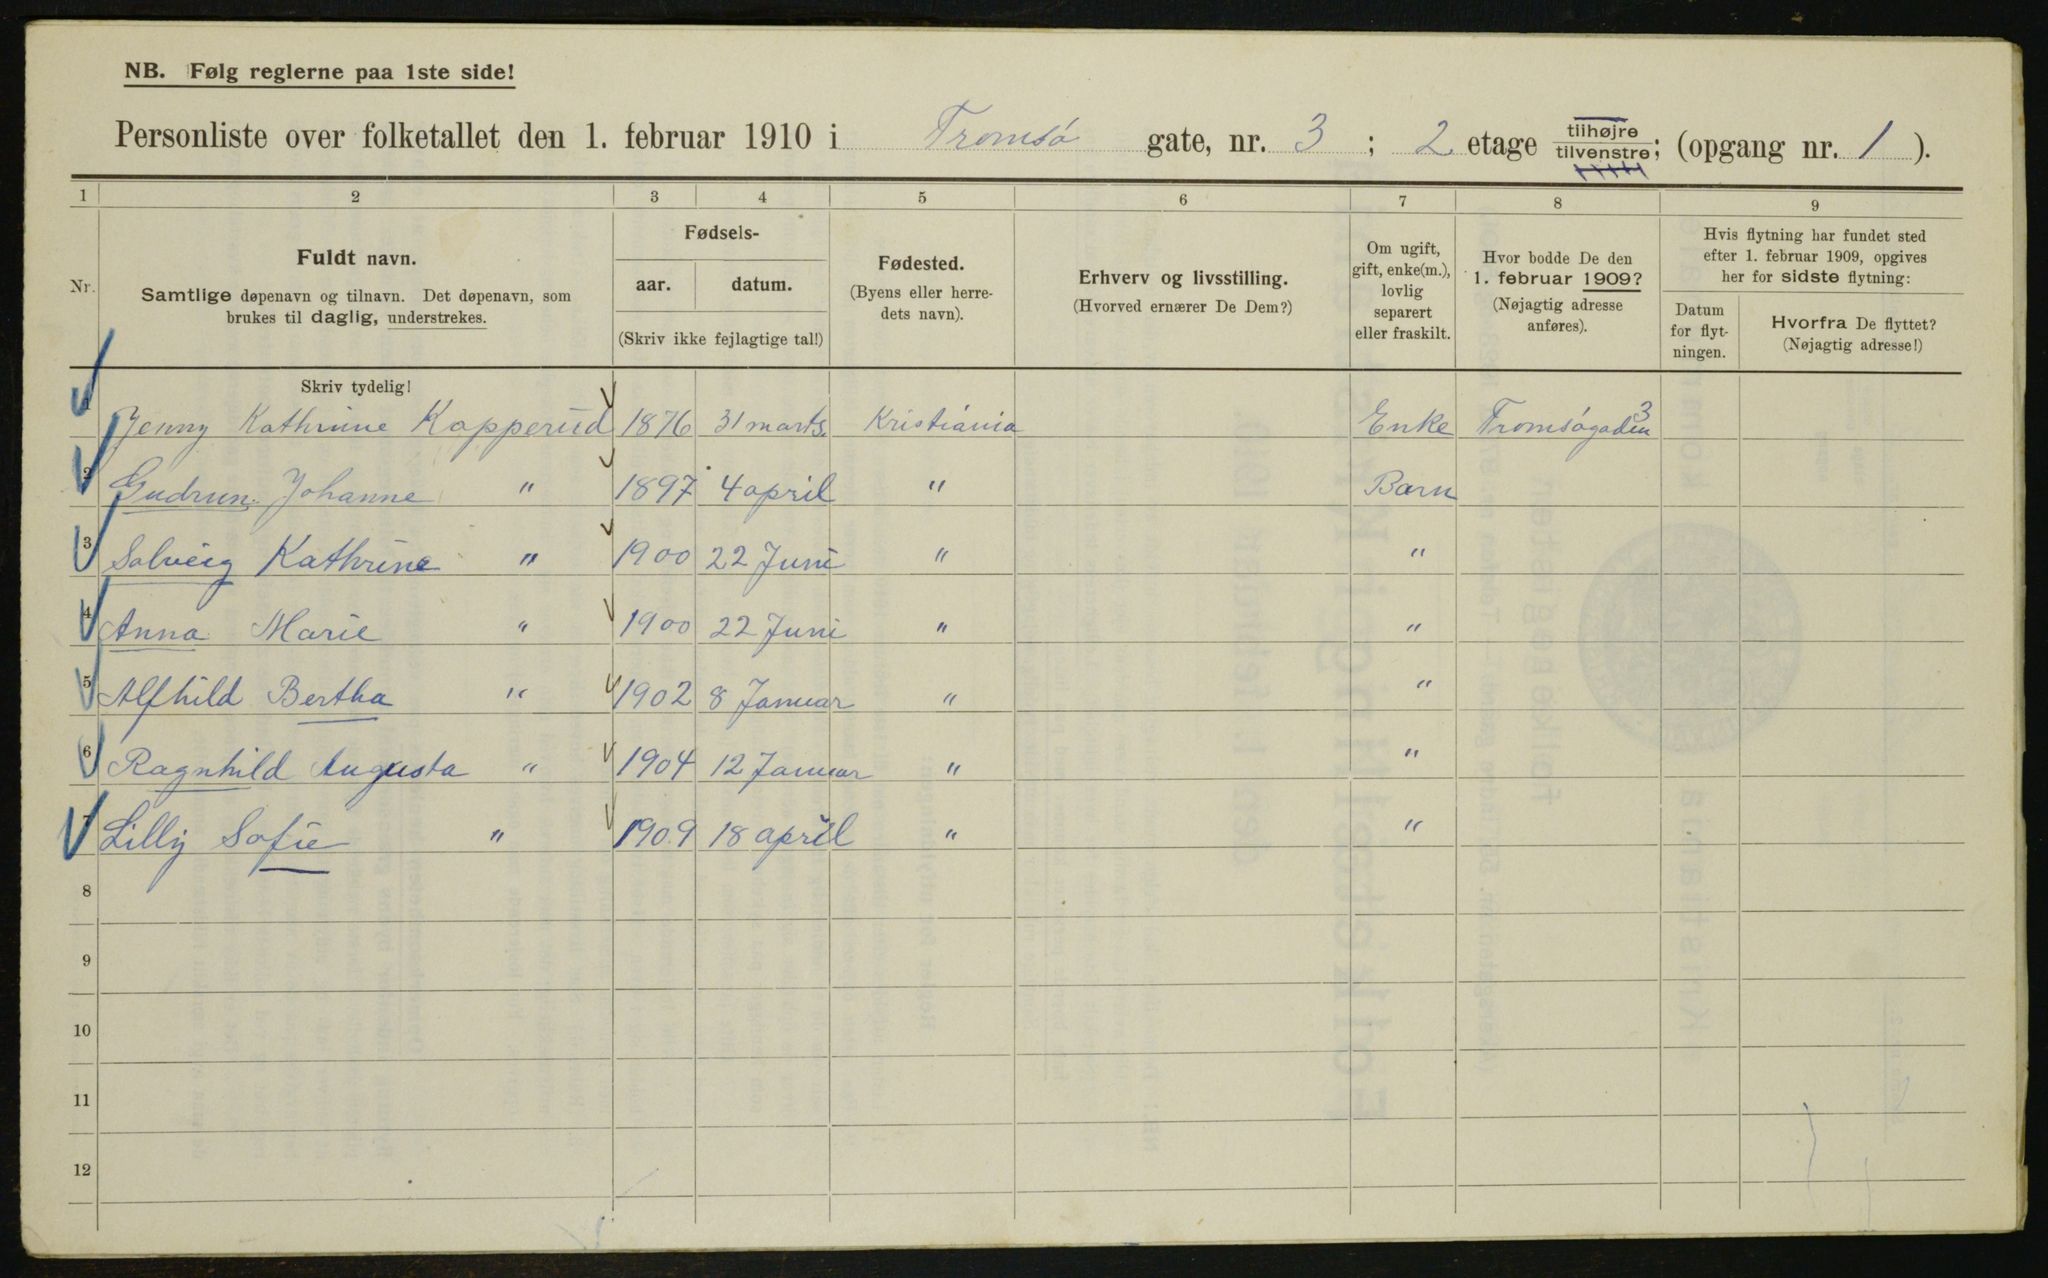 NB. Følg reglerne paa 1ste side!
Personliste over folketallet den 1. februar 1910 i Tromsø gate, nr. 3 ; 2 etage tilhøjre tilvenstre; (opgang nr. 1 ).
1 2 3 4 5 6 7 8 9
Nr.
Fuldt navn.
Samtlige døpenavn og tilnavn. Det døpenavn, som
brukes til daglig, understrekes.
Skriv tydelig!
Fødsels-
aar. datum.
(Skriv ikke fejlagtige tal!)
Fødested.
(Byens eller herre-
dets navn).
Erhverv og livsstilling.
(Hvorved ernærer De Dem?)
Om ugift,
gift, enke(m.),
lovlig
separert
eller fraskilt.
Hvor bodde De den
1. februar 1909?
(Nøjagtig adresse
anføres).
Hvis flytning har fundet sted
efter 1. februar 1909, opgives
her for sidste flytning:
Datum
for flyt-
ningen.
Hvorfra De flyttet?
(Nøjagtig adresse!)
1 Jenny Kathrine Kopperud 1876 31 marts. Kristiania Enke Tromsøgaden 3
2 Gudrun Johanne " 1897 4 april " Barn
3 Solveig Kathrine " 1900 22 Juni " "
4 Anna Marie " 1900 22 Juni " "
5 Alfhild Bertha " 1902 8 Januar " "
6 Ragnhild Augusta " 1904 12 Januar " "
7 Lilly Sofie " 1909 18 april " "
8
9
10
11
12